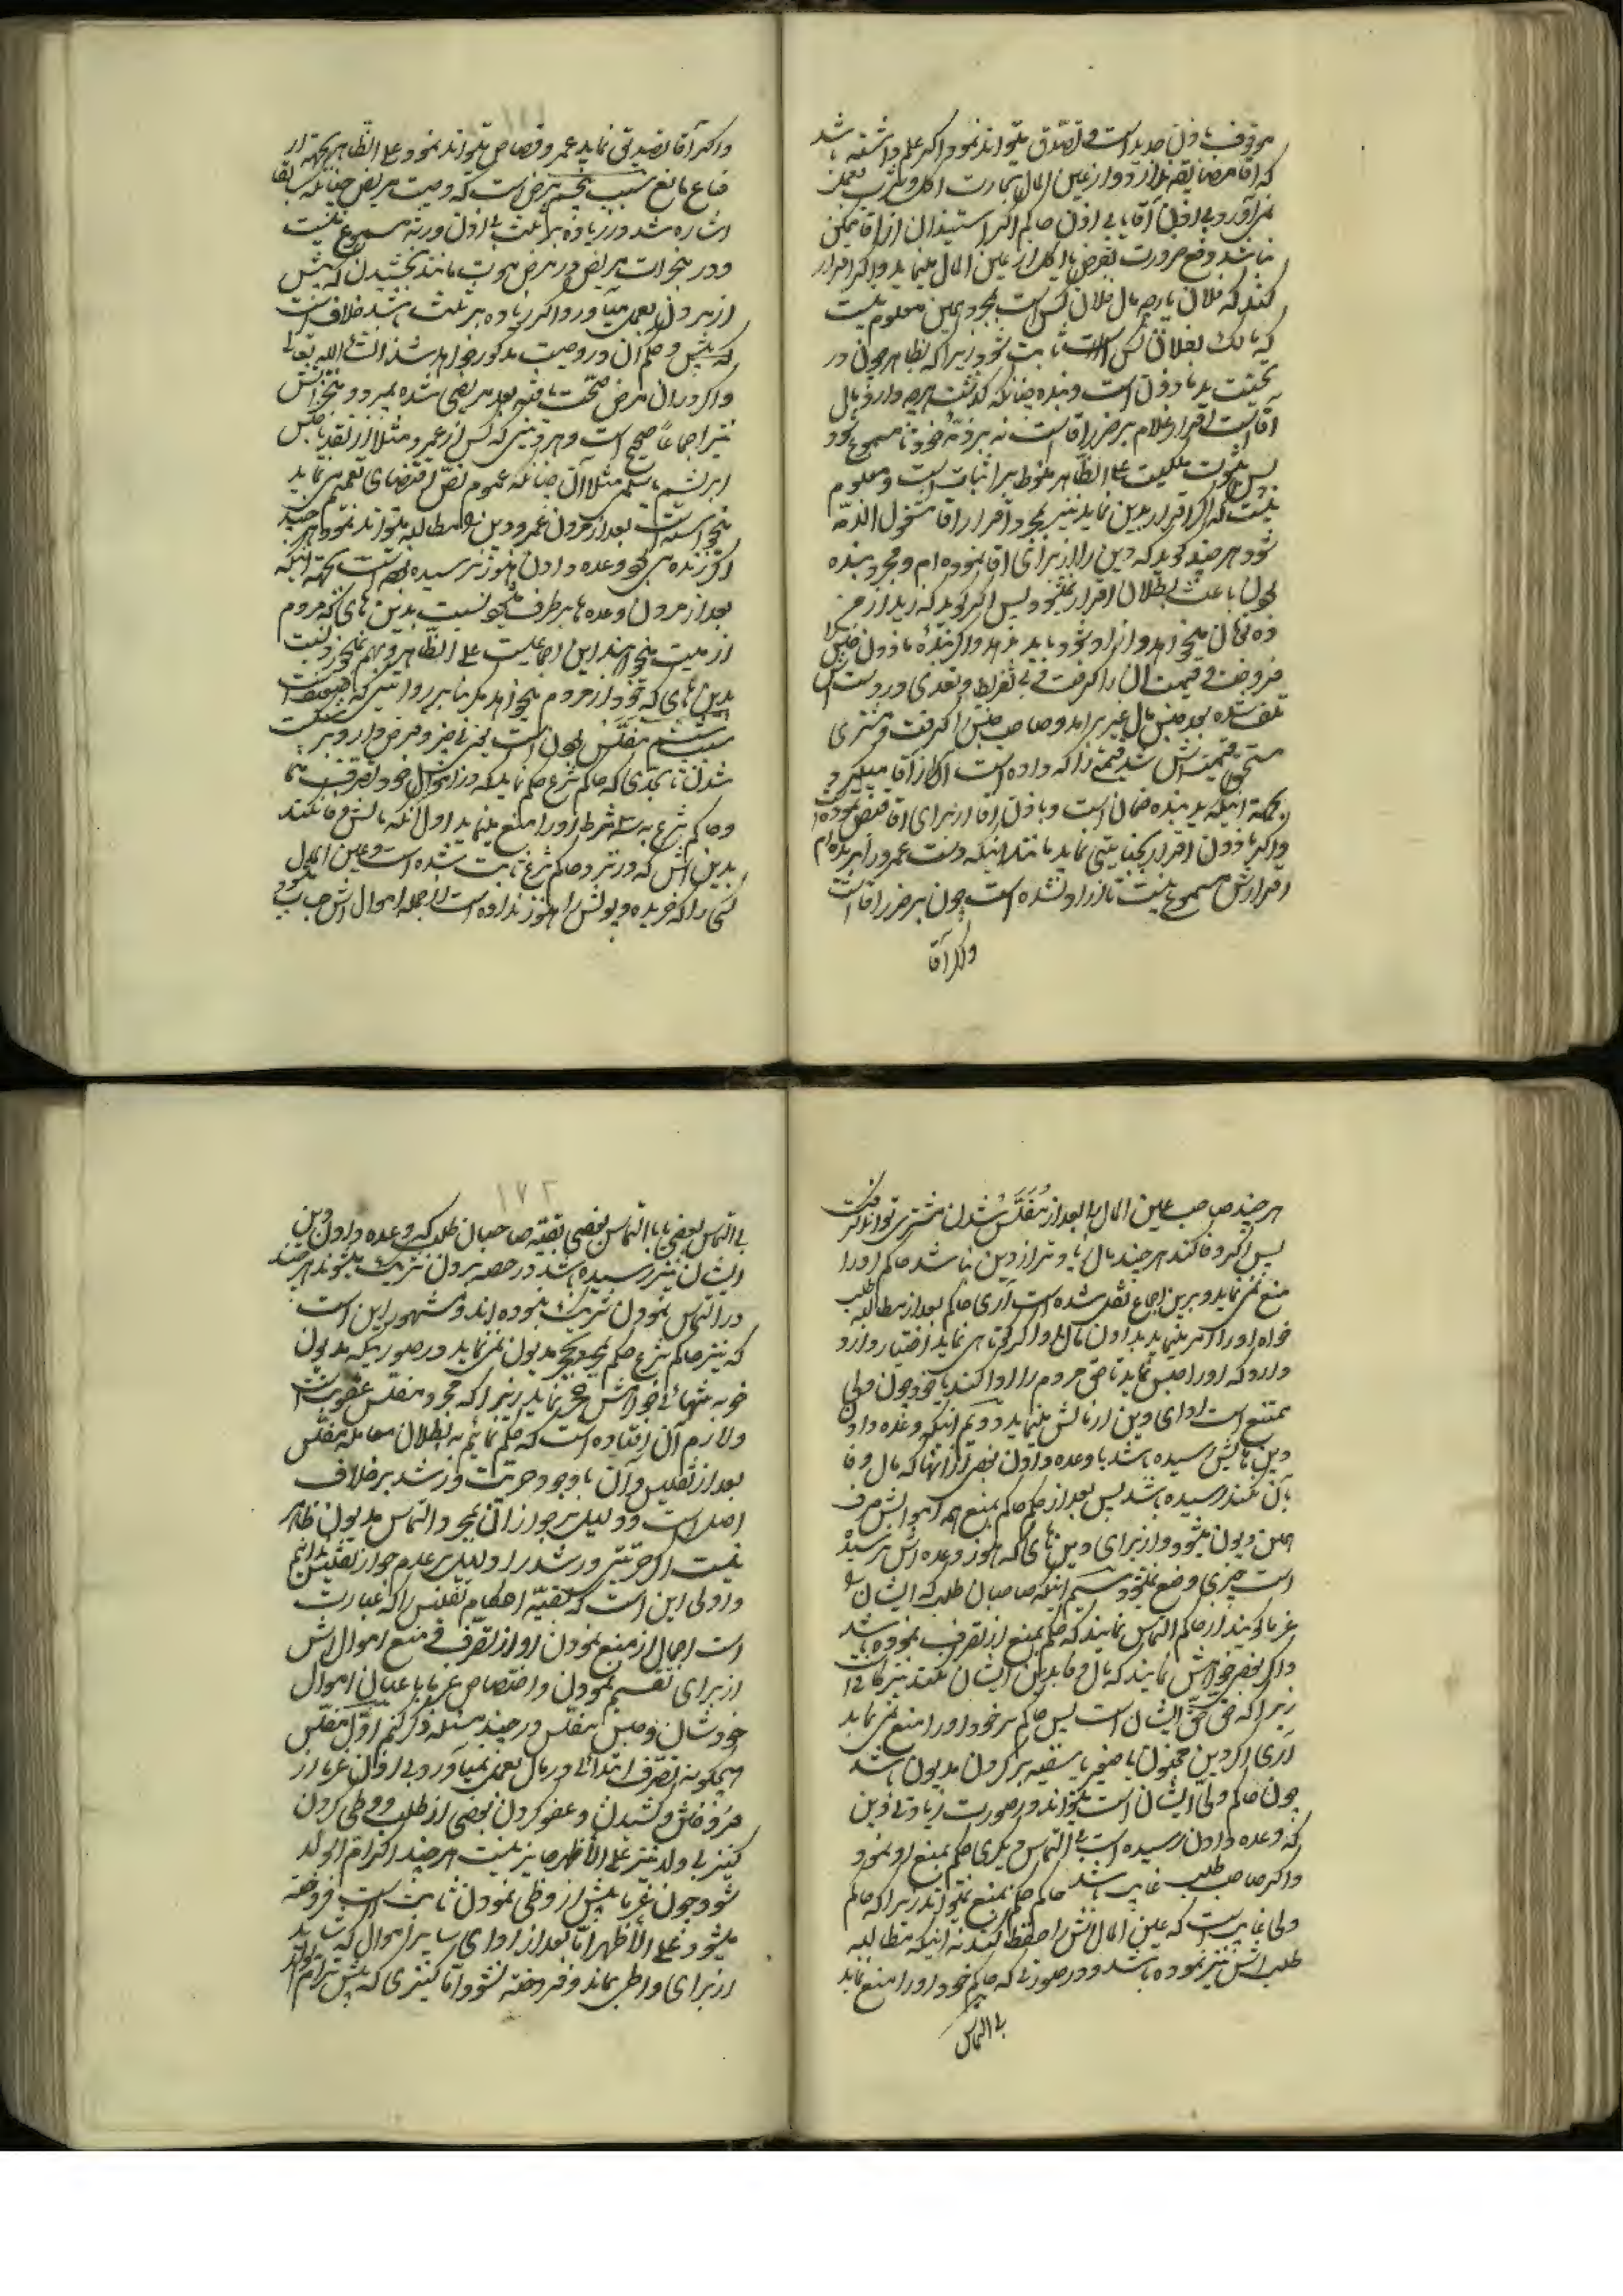 موقوف باذن جدید است و تصدّق میتواند نمود و اگر علم داشته باشد
که آقا مضایقه ندارد و از عین المال تجارت اکل و شرب بعمل
نمی آورد بی اذن آقا یا بی اذن حاکم اگر استیذان از آقا ممکن
نباشد و رفع ضرورت بقرض یا اکل از عین المال مینماید و اگر اقرار
کند که فلان پارچه مال فلان کس است بمجرد همین معلوم نیست
که مالک بفلان کس است ثابت شود زیرا که بظاهر چون در
تحت ید ماذون است و بنده چنانکه گذشت هرچه دارد مال
آقا است اقرار غلام بر ضرر آقا است نه بر ذمّه خود تا مسموع شود
پس ثبوت ملکیت علی الظاهر منوط بر اثبات است و معلوم
نیست که اگر اقرار بدین نماید نیز بمجرد اقرار آقا مشغول الذمّه
شود هر چند گوید که دین را از برای آقا نموده ام و مجرد بنده
بودن باعث بطلان اقرار نمیشود پس اگر گوید که زید از من
ده تومان میخواهد و آزاد شود باید بدهد و اگر بنده ماذون جنس را
فروخت و قیمت آن را گرفت و بی تفریط و تعدی در دستش
تلف شده بعد جنس مال غیر برآمد و صاحب جنس را گرفت و مشتری
مستحق قیمت اش شد قیمتی را که داده است از آقا میگیرد
بجهة اینکه ید بنده ضمان است و باذن آقا از برای آقا قبض نموده
و اگر ماذون اقرار بجنایتی نماید مانند اینکه دست عمرو را بریده ام
اقرارش مسموع نیست تا آزاد نشده است چون بر ضرر آقا است
و اگر آقا
و اگر آقا تصدیق نماید عمرو قصاص میتواند نمود علی الظاهر بجهة
سبب پنجم مرض است که وصیت مریض چنانکه سابقا
اشاره شد در زیاده بر ثلث بی اذن ورثه مسموع نیست
و در منجزات مریض در مرض موت مانند بخشیدن که پیش
از مردن بعمل میآورد اگر زیاده بر ثلث باشد خلاف است
که پیش و حکم آن در وصیت مذکور خواهد شد انشاء الله تعالی
و اگر در آن مرض صحّت یافته بعد مریض شده بمیرد منجزاتش
نیز اجماعاً صحیح است و هر دینی که کس از عمرو مثلا از نقد یا جنس
ابریشم بسلم مثلا آن چنانکه عموم نصّ اقتضای تعمیم می نماید
میخواسته است بعد از مردن عمرو دین را مطالبه میتواند نمود هر چند
اگر زنده می بود وعده دادن هنوز نرسیده است بجهة اینکه
بعد از مردن وعده ها برطرف میشود نسبت بدین های که مردم
از میت میخواهند این اجماعیست علی الظاهر
بدین های که خود از مردم میخواهد مگر بنا بر روایتی که ضعیف است
سبب ششم مفلّس بودن است یعنی فقیر و قرض دار و بر
شدن تا بحدی که حاکم شرع حکم نماید که در اموال خود تصرف ننما
و حاکم شرع به سه شرط او را منع مینماید اول آنکه مالش وفا نکند
بدین اش که در نزد حاکم شرع ثابت شده است و عین المال
کسی را که خریده و پولش را هنوز نداده است از جمله اموال اش حساب میشود
هر چند صاحب عین المال بعد از مفلّس شدن مشتری تواند گرفت
پس اگر وفا کند هر چند مال زیادتر از دین نباشد حاکم او را
منع نمی نماید و برین اجماع نقل شده است آری حاکم بعد از مطالبه طلب
خواه او را امر مینماید بدادن مال و اگر کوتاهی نماید اختیار دارد
دارد که او را حبس نماید تا حق مردم را ادا کند یا خود چون ولی
ممتنع است ادای دین از مالش مینماید دویم اینکه وعده دادن
دین هایش رسیده باشد یا وعده دادن بعضی از آنها که مال وفا
بآن نکند رسیده باشد پس بعد از حکم حاکم بمنع همه اموالش صرف
همین دیون میشود و از برای دین های که هنوز وعده اش نرسیده
است چیزی وضع نمیشود سیم اینکه صاحبان طلب که ایشان را
غرما گویند از حاکم التماس نمایند که حکم بمنع از تصرف نموده باشد
و اگر بعضی خواهش نمایند که مال وفا بدین ایشان نکند نیز کافی است
زیرا که حق حق ایشان است پس حاکم سر خود او را منع نمی نماید
آری اگر دین مجنون یا صغیر یا سفیه بر گردن مدیون باشد
چون حاکم ولی ایشان است میتواند و در صورت زیادتی دین
که وعده دادن رسیده است بی التماس دیگری حاکم بمنع او نمود
و اگر صاحب طلب غایب باشد حاکم حکم بمنع نمیتواند زیرا که حاکم
ولی غایب است که عین المال اش را حفظ کند نه اینکه مطالبه
طلب اش نیز نموده باشد و در صورتی که حاکم خود او را منع نماید
بی التماس
١٧٢
بی التماس بعضی یا با التماس بعضی بقیّه صاحبان طلب که وعده دادن دین
ایشان نیز رسیده باشد در حصه بردن شریک میشوند هر چند
در التماس نمودن شریک نبوده اند و مشهور این است
که نیز حاکم شرع حکم بحجر مدیون نمی نماید در صورتیکه مدیون
خود به تنهائی خواهش حجر نماید زیرا که حجر و مفلس عقوبت است
و لازم آن افتاده است که حکم نمائیم به بطلان معامله مفلس
بعد از تفلیس و آن با وجود حریّت و رشد بر خلاف
اصل است و دلیل بر جواز آن بمجرد التماس مدیون ظاهر
نیست اگر حریّتی و رشد را دلیل بر عدم جواز تفلیس ندانیم
و اولی این است که بقیّه احکام تفلیس را که عبارت
است اجمال از منع نمودن او از تصرف و منع اموال اش
از برای تقسیم نمودن و اختصاص غرما باعیان اموال
خودشان و حبس مفلس در چند مسئله ذکر کنم اوّل مفلس
هیچگونه تصرف ابتدائی در مال بعمل نمیآورد بی اذن غرما از
فروختن و بخشیدن و عفو کردن بعضی از طلب و وطی کردن
کنیز بی ولد نیز علی الأظهر جایز نیست هر چند اگر ام الولد
شود چون غرما پیش از وطی نمودن ثابت است فروخته
میشود علی الأظهر امّا بعد از ادای سایر اموال که شاید
از برای واطی بماند و فروخته نشود امّا کنیزی که پیش تر ام الولد